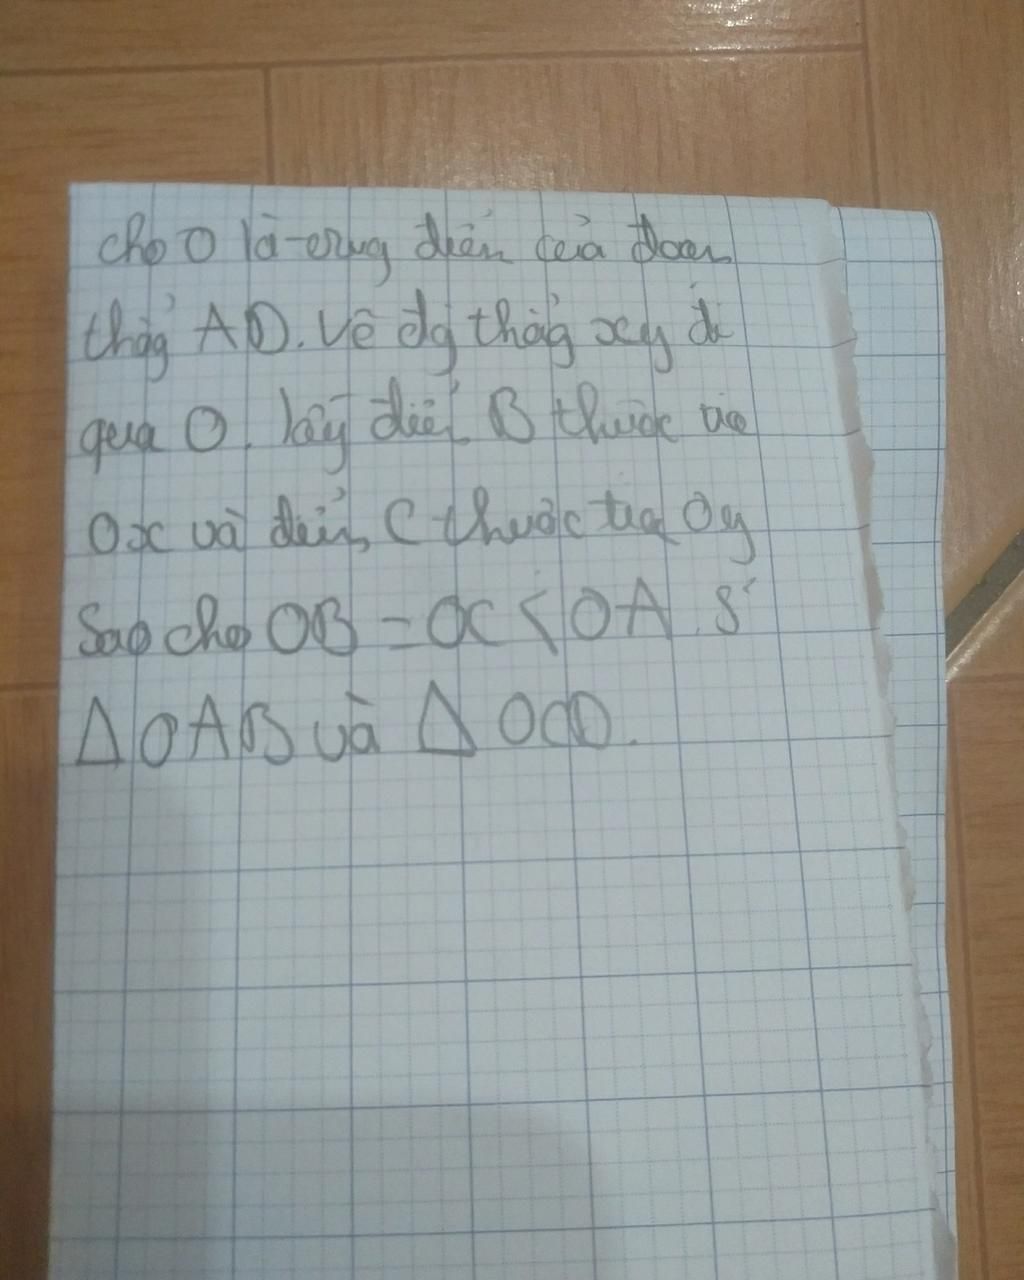 cho O là trung điểm của đoạn
thẳg AD. Vẽ đg thẳg xy đi
qua O. lấy điể B thuộc tia
Ox và điểm C thuộc tia Oy
Sao cho OB = OC < OA. S²
Δ OAB và Δ OCD.